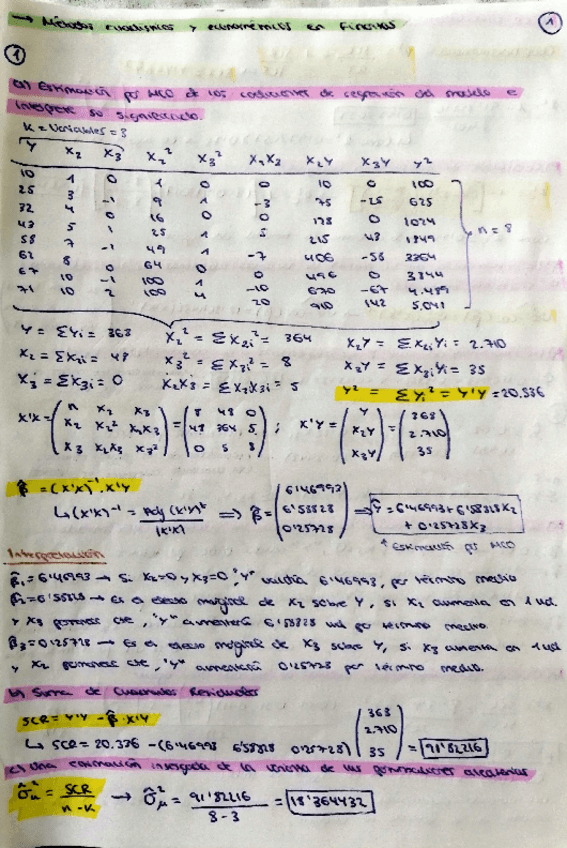 → Métodos estadísticos y econométricos en Finanzas
①
①
a) Estimación por MCO de los coeficientes de regresión del modelo e
interprete su significado.
K = Variables = 3
Y X₂ X₃ X₂² X₃² X₂X₃ X₂Y X₃Y Y²
10 1 0 1 0 0 10 0 100
25 3 -1 9 1 -3 75 -25 625
32 4 0 16 0 0 128 0 1024
43 5 1 25 1 5 215 43 1849
58 7 -1 49 1 -7 406 -58 3364
62 8 0 64 0 0 496 0 3844
67 10 -1 100 1 -10 670 -67 4.489
71 10 2 100 4 20 710 142 5.041
n = 8
Y = ΣYi = 368 X₂² = ΣX₂i² = 364 X₂Y = ΣX₂iYi = 2.710
X₂ = ΣX₂i = 48 X₃² = ΣX₃i² = 8 X₃Y = ΣX₃iYi = 35
X₃ = ΣX₃i = 0 X₂X₃ = ΣX₂X₃i = 5 Y² = ΣYi² = Y'Y = 20.336
X'X = (n X₂ X₃) = (8 48 0) ; X'Y = (Y) = (368)
(X₂ X₂² X₂X₃) (48 364 5) (X₂Y) (2.710)
(X₃ X₂X₃ X₃²) (0 5 8) (X₃Y) (35)
β̂ = (X'X)⁻¹·X'Y
↳ (X'X)⁻¹ = Adj (X'X)ᵗ / |X'X| ⇒ β̂ = (6'46993 6'58828 0'25728) ⇒ Ŷ = 6'46993 + 6'58828X₂ + 0'25728X₃
↑ Estimación por MCO
Interpretación
β̂₁ = 6'46993 → Si X₂=0 y X₃=0, "Y" valdría 6'46993, por término medio
β̂₂ = 6'58828 → Es el efecto marginal de X₂ sobre Y, si X₂ aumenta en 1 ud.
y X₃ permanece cte, "Y" aumentará 6'58828 ud por término medio.
β̂₃ = 0'25728 → Es el efecto marginal de X₃ sobre Y, si X₃ aumenta en 1 ud
y X₂ permanece cte, "Y" aumentará 0'25728 por término medio.
b) Suma de Cuadrados Residuales
SCR = Y'Y - β̂·X'Y
↳ SCR = 20.336 - (6'46993 6'58828 0'25728) (368 2.710 35) = 91'82216
c) Una estimación insesgada de la varianza de las perturbaciones aleatorias
σ̂ᵤ² = SCR / n - K → σ̂ᵤ² = 91'82216 / 8 - 3 = 18'364432